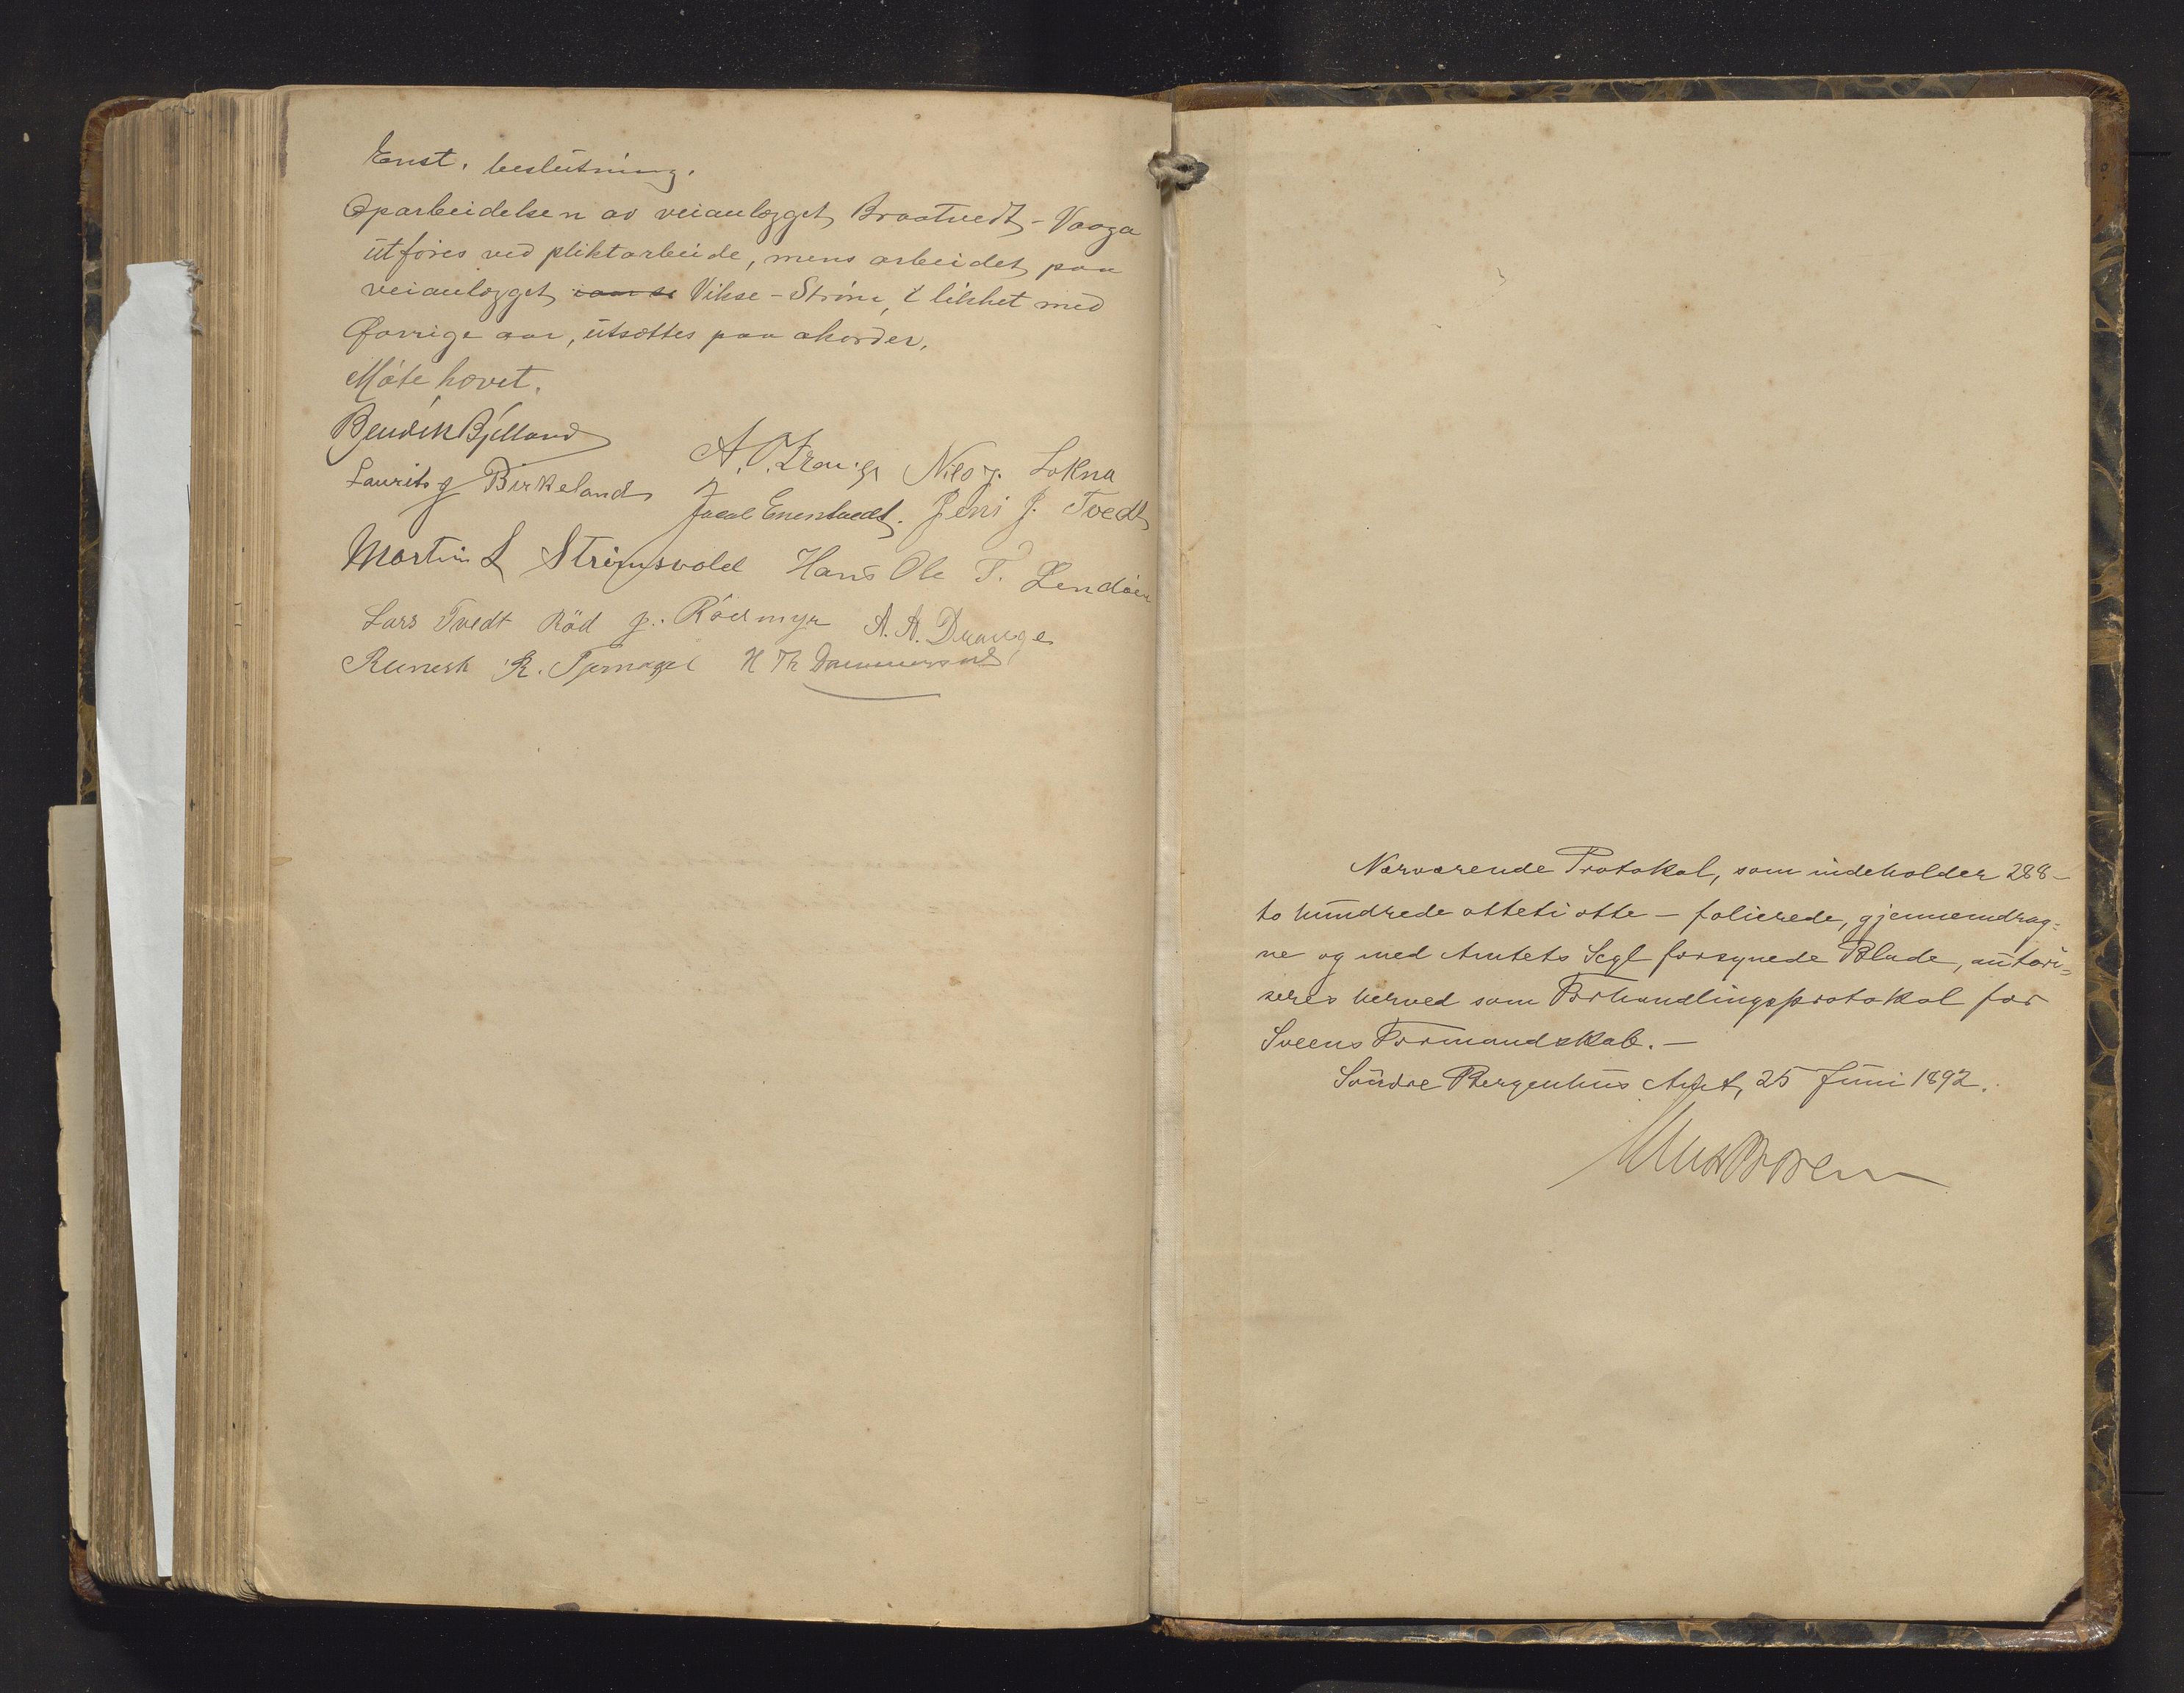 Enst. beslutning.
Oparbeidelsen av veianlægget Braatvedt - Vaaga
utføres ved pliktarbeide, mens arbeidet paa
veianlægget Vikse - Strøm, i likhet med
forrige aar, utsættes paa akorder.
Møte hævet.
Bendik Bjelland
A. Nils J. Lokna
Laurits J Birkeland
Jacob Emerstvedt. Jens J. Tvedt
Martin L Strømsvold Hans Ole T. Lendøen
Lars Tvedt Röd J. Röermyr A. A. Drange
R. Tjernagel H Th Dammersnes
Nærværende Protokol, som indeholder 288 -
to hundrede otteti otte - folierede, gjennemdrag=
ne og med Amtets Segl forsynede Blade, autori=
seres herved som Forhandlingsprotokol for
Sveens Formandskab. -
Søndre Bergenhus Amt, 25 Juni 1892.